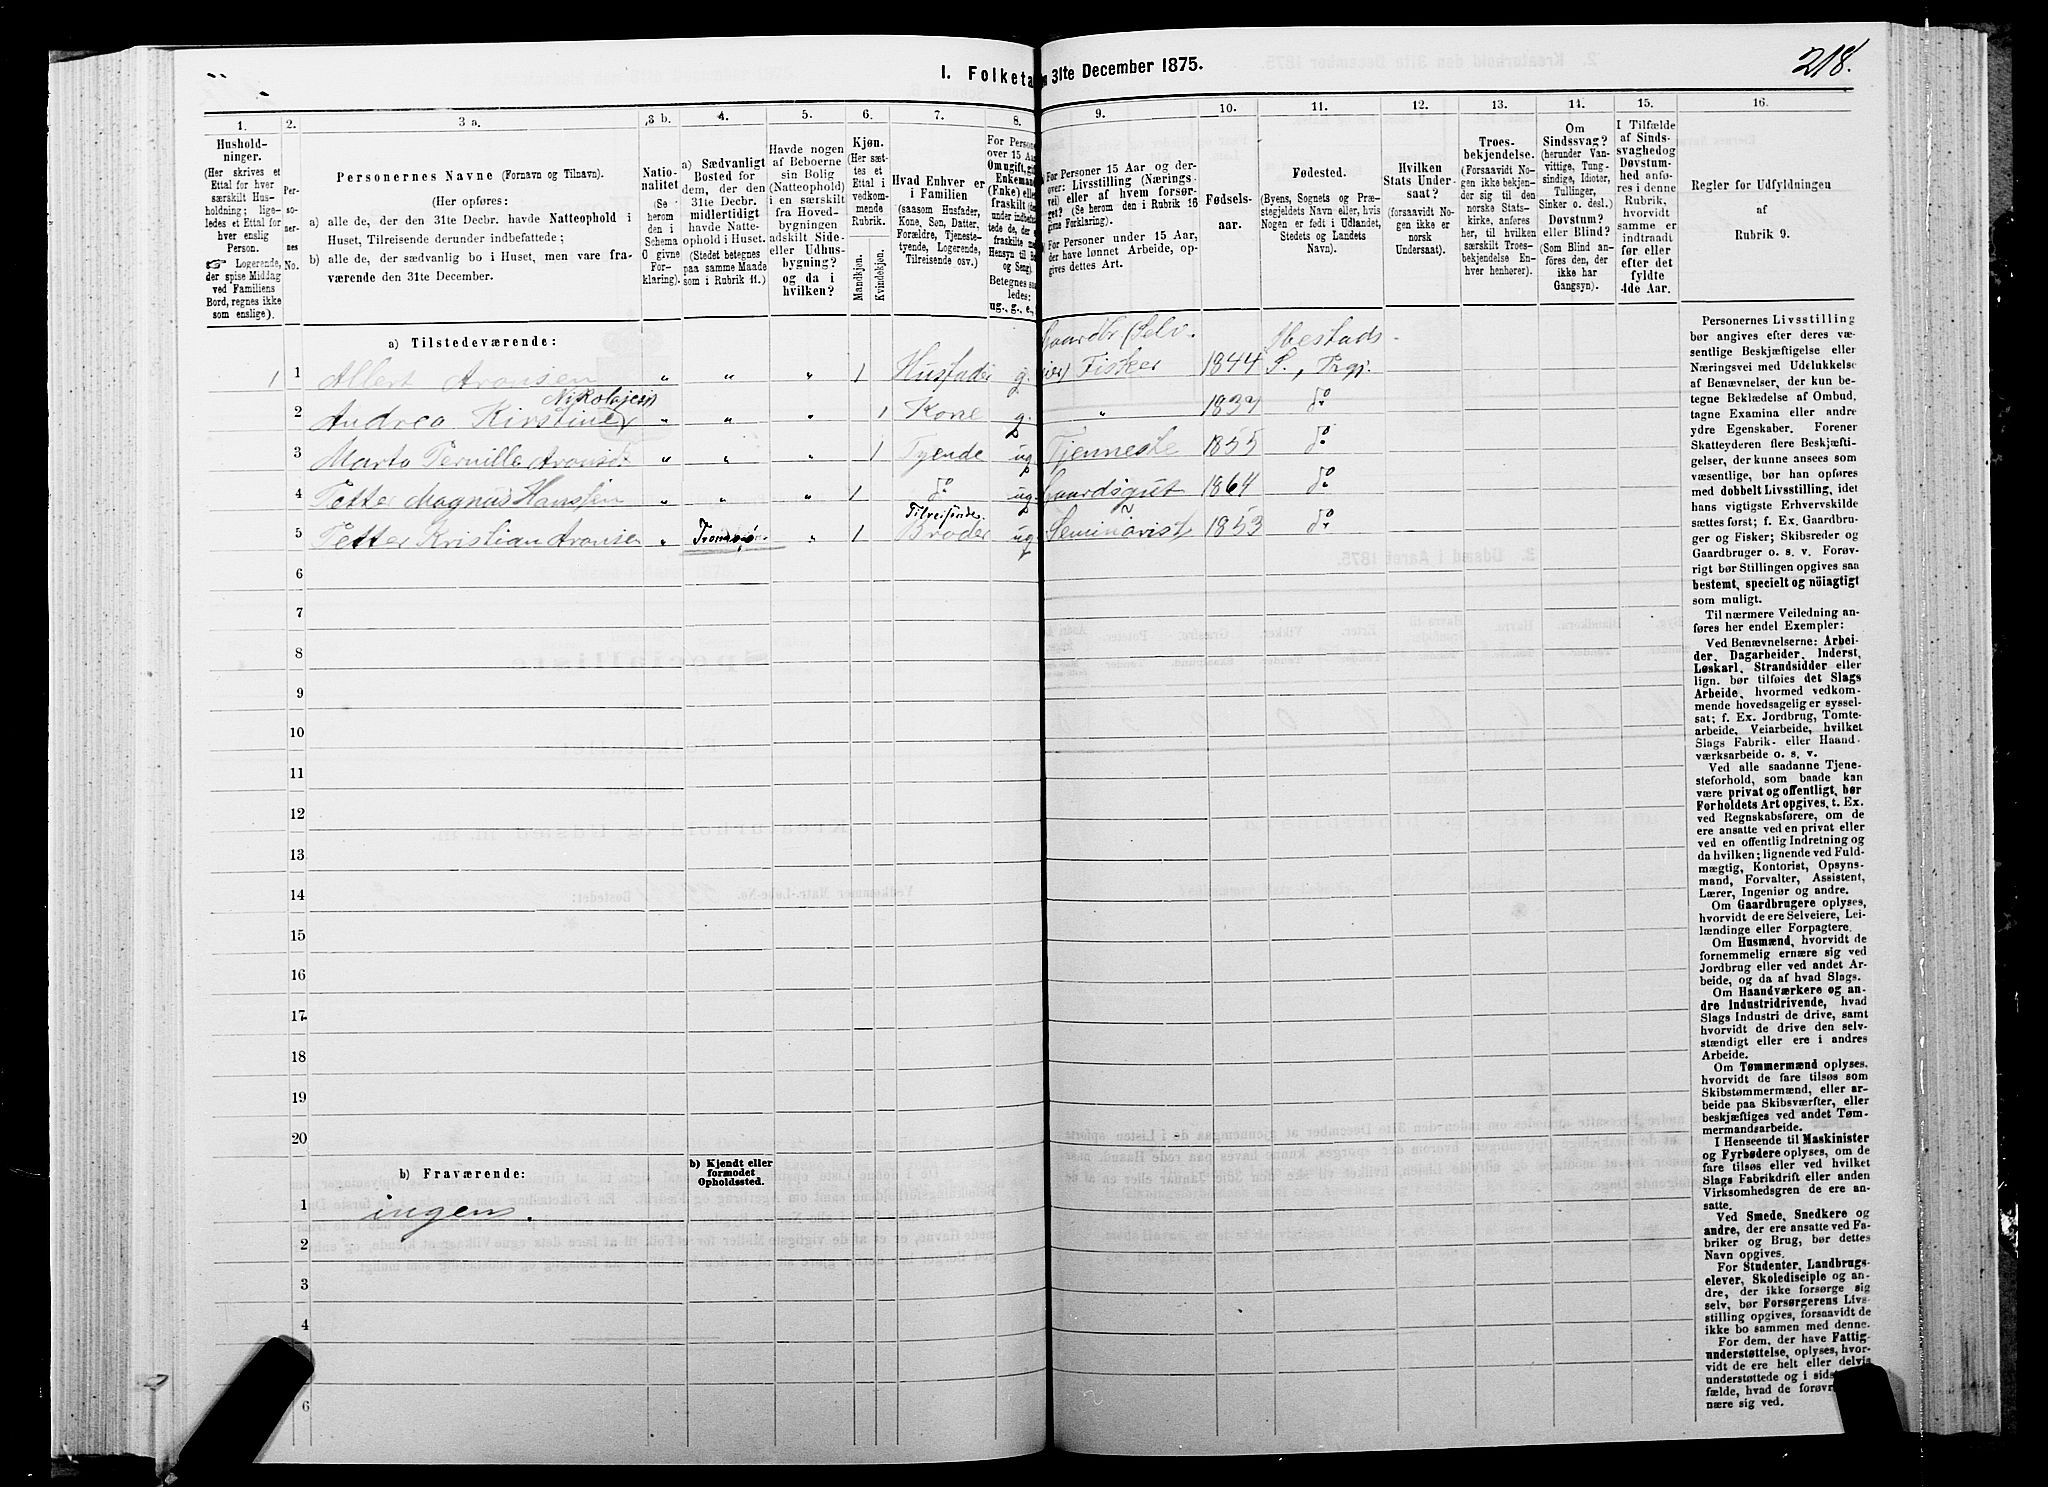 I. Folketa
31te December 1875.
218.
1.
Hushold-
ninger.
(Her skrives et
Ettal for hver
særskilt Hus-
holdning; lige-
ledes et Ettal for
hver enslig
Person.
Logerende,
der spise Middag
ved Familiens
Bord, regnes ikke
som enslige).
2.
Per-
so-
ner-
nes
No.
3 a.
Personernes Navne (Fornavn og Tilnavn).
(Her opføres:
a) alle de, der den 31te Decbr. havde Natteophold i
Huset, Tilreisende derunder indbefattede;
b) alle de, der sædvanlig bo i Huset, men vare fra-
værende den 31te December.
3 b.
Natio-
nalitet
(Se
herom
den i
Schema
O givne
For-
klaring).
4.
a) Sædvanligt
Bosted for
dem, der den
31te Decbr.
midlertidigt
havde Natte-
ophold i Huset.
(Stedet betegnes
paa samme Maade
som i Rubrik 11.)
5.
Havde nogen
af Beboerne
sin Bolig
(Natteophold)
i en særskilt
fra Hoved-
bygningen
adskilt Side-
eller Udhus-
bygning?
og da i
hvilken?
6.
Kjøn.
(Her sæt-
tes et
Ettal i
vedkom-
mende
Rubrik.
Mandkjøn.
Kvindekjøn.
7.
Hvad Enhver er
i Familien
(saasom Husfader,
Kone, Søn, Datter,
Forældre, Tjeneste-
tyende, Logerende,
Tilreisende osv.)
8.
For Person
over 15 Aar
Om ugift, gif
Enkeman
(Enke) elle
fraskilt
Betegnes saa
ledes:
ug., g., e.,
9.
For Personer 15 Aar og der-
over: Livsstilling (Nærings-
vei) eller af hvem forsør-
get? (Se herom i Rubrik 16
givne Forklaring).
For Personer under 15 Aar,
der have lønnet Arbeide, op-
gives dettes Art.
10.
Fødsels-
aar.
11.
Fødested.
(Byens, Sognets og Præ-
stegjeldets Navn eller, hvis
Nogen er født i Udlandet,
Stedets og Landets
Navn).
12.
Hvilken
Stats Under-
saat?
(forsaavidt No-
gen ikke er
norsk
Undersaat).
13.
Troes-
bekjendelse.
(Forsaavidt No-
gen ikke bekjen-
der sig til den
norske Stats-
kirke, anføres
her, til hvilken
særskilt Troes-
bekjendelse En-
hver henhører).
14.
Om
Sindssvag?
(herunder Van-
vittige, Tung-
sindige, Idioter,
Tullinger,
Sinker o. desl.)
Døvstum?
eller Blind?
(Som Blind an-
føres den, der
ikke har
Gangsyn).
15.
I Tilfælde
af Sinds-
svaghed og
Døvstum-
hed anfø-
res i denne
Rubrik,
hvorvidt
samme er
indtraadt
før eller
efter det
fyldte
4de Aar.
16.
Regler for Udfyldningen
af
Rubrik 9.
a) Tilstedeværende:
1 1 Albert Aronsen " " " 1 Husfader g. Gaardbr (Selv-
eier) Fisker 1844 Ibestads
S., Prgj.
2 Andrea Kirstine Nikolajesn " " " 1 Kone g. " 1837 do
3 Marta Pernille Aronsd. " " " 1 Tyende ug Tjenneste 1855 do
4 Petter Magnus Hanssen " " " 1 do ug Gaardsgut 1864 do
5 Petter Kristian Aronsen " Tromsø " 1 Tilreisende
Broder ug Seminarist 1853 do
6
7
8
9
10
11
12
13
14
15
16
17
18
19
20
b) Fraværende:
b) Kjendt eller
formodet
Opholdssted.
1 ingen.
2
3
4
6
Personernes Livsstilling
bør angives efter deres væ-
sentlige Beskjæftigelse eller
Næringsvei med Udelukkelse
af Benævnelser, der kun be-
tegne Beklædelse af Ombud,
tagne Examina eller andre
ydre Egenskaber. Forener
Skatteyderen flere Beskjæfti-
gelser, der kunne ansees som
væsentlige, bør han opføres
med dobbelt Livsstilling, idet
hans vigtigste Erhvervskilde
sættes først; f. Ex. Gaardbru-
ger og Fisker; Skibsreder og
Gaardbruger o. s. v. Forøv-
rigt bør Stillingen opgives saa
bestemt, specielt og nöiagtigt
som muligt.
Til nærmere Veiledning an-
føres her endel Exempler:
Ved Benævnelserne: Arbei-
der, Dagarbeider, Inderst,
Løskarl, Strandsidder eller
lign. bør tilføies det Slags
Arbeide, hvormed vedkom-
mende hovedsagelig er syssel-
sat; f. Ex. Jordbrug, Tomte-
arbeide, Veiarbeide, hvilket
Slags Fabrik- eller Haand-
værksarbeide o. s. v.
Ved alle saadanne Tjene-
steforhold, som baade kan
være privat og offentligt, bør
Forholdets Art opgives, t. Ex.
ved Regnskabsførere, om de
ere ansatte ved en privat eller
ved en offentlig Indretning og
da hvilken; lignende ved Fuld-
mægtig, Kontorist, Opsyns-
mand, Forvalter, Assistent,
Lærer, Ingeniør og andre.
Om Gaardbrugere oplyses,
hvorvidt de ere Selveiere, Lei-
lændinge eller Forpagtere.
Om Husmænd, hvorvidt de
fornemmelig ernære sig ved
Jordbrug eller ved andet Ar-
beide, og da af hvad Slags.
Om Haandværkere og an-
dre Industridrivende, hvad
Slags Industri de drive, samt
hvorvidt de drive den selv-
stændigt eller ere i andres
Arbeide.
Om Tømmermænd oplyses,
hvorvidt de fare tilsøs som
Skibstømmermænd, eller ar-
beide paa Skibsværfter, eller
beskjæftiges ved andet Tøm-
mermandsarbeide.
I Henseende til Maskinister
og Fyrbødere oplyses, om de
fare tilsøs eller ved hvilket
Slags Fabrikdrift eller anden
Virksomhedsgren de ere an-
satte.
Ved Smede, Snedkere og
andre, der ere ansatte ved Fa-
briker og Brug, bør dettes
Navn opgives.
For Studenter, Landbrugs-
elever, Skoledisciple og an-
dre, der ikke forsørge sig
selv, bør Forsørgerens Livs-
stilling opgives, forsaavidt de
ikke bo sammen med denne.
For dem, der have Fattig-
understøttelse, oplyses, hvor-
vidt de ere helt eller delvis
understøttede og i sidst
fælde, hvad de forøvr
nære sig ved.